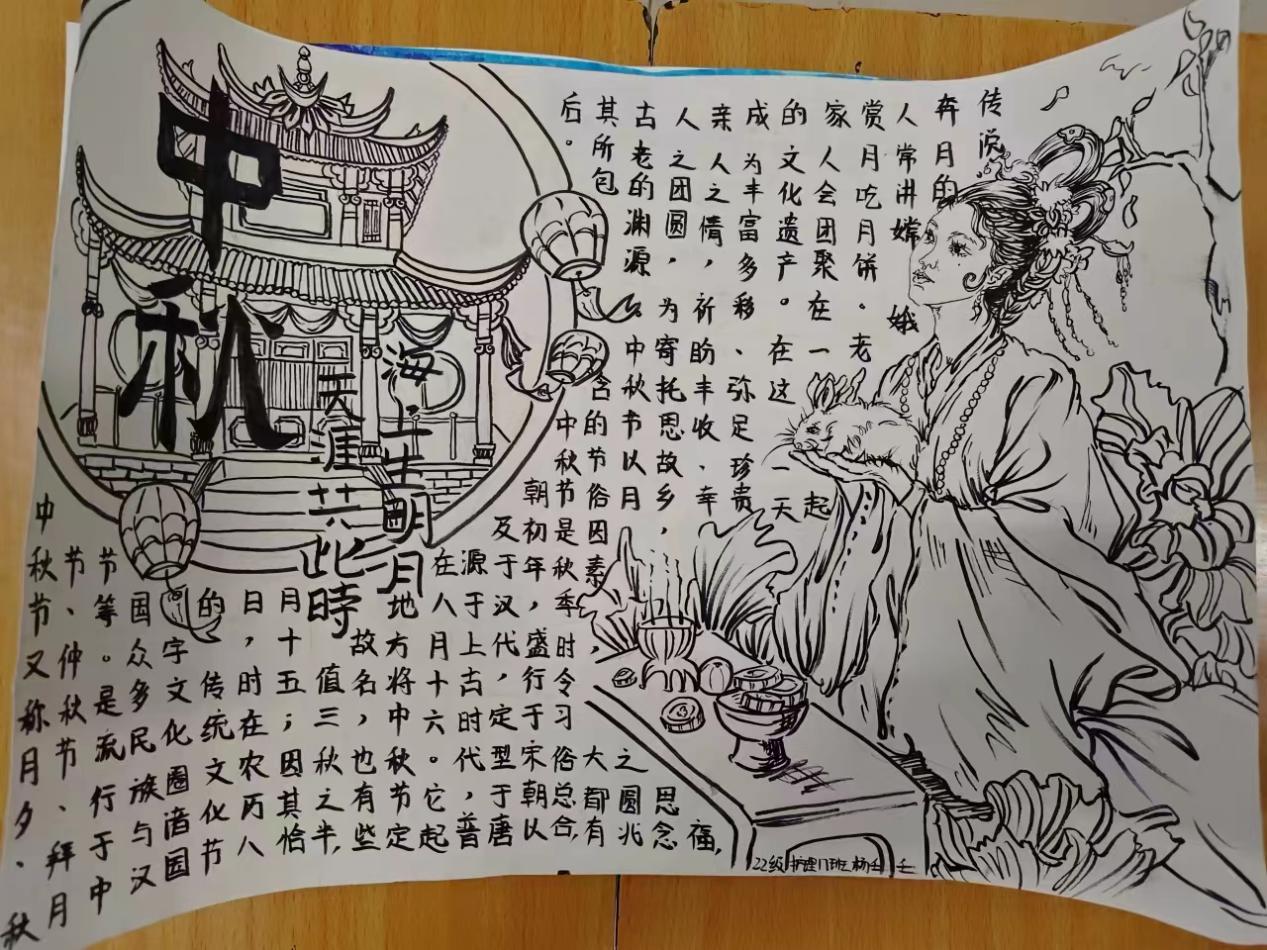 中秋
海上生明月
天涯共此時
中秋节又称月夕、秋
节、仲秋节、拜月
节等。是流行于中
国众多民族与汉
字文化圈谙国
的传统文化节
日，时在农历八
月十五；因其恰
值三秋之半，
故名，也有些
地方将中秋节定
在八月十六。它起
源于上古时代，普
及于汉代，定型于唐
朝初年，盛行于宋朝以
后。中秋节是秋季时令习俗总合，
其所包含的节俗因素，大都有
古老的渊源。中秋节以月之圆兆
人之团圆，为寄托思故乡，思念
亲人之情，祈盼丰收、幸福，
成为丰富多移、弥足珍贵
的文化遗产。在这一天
家人会团聚在一起
赏月吃月饼。老
人常讲嫦娥
奔月的
传说
22级护理17班杨